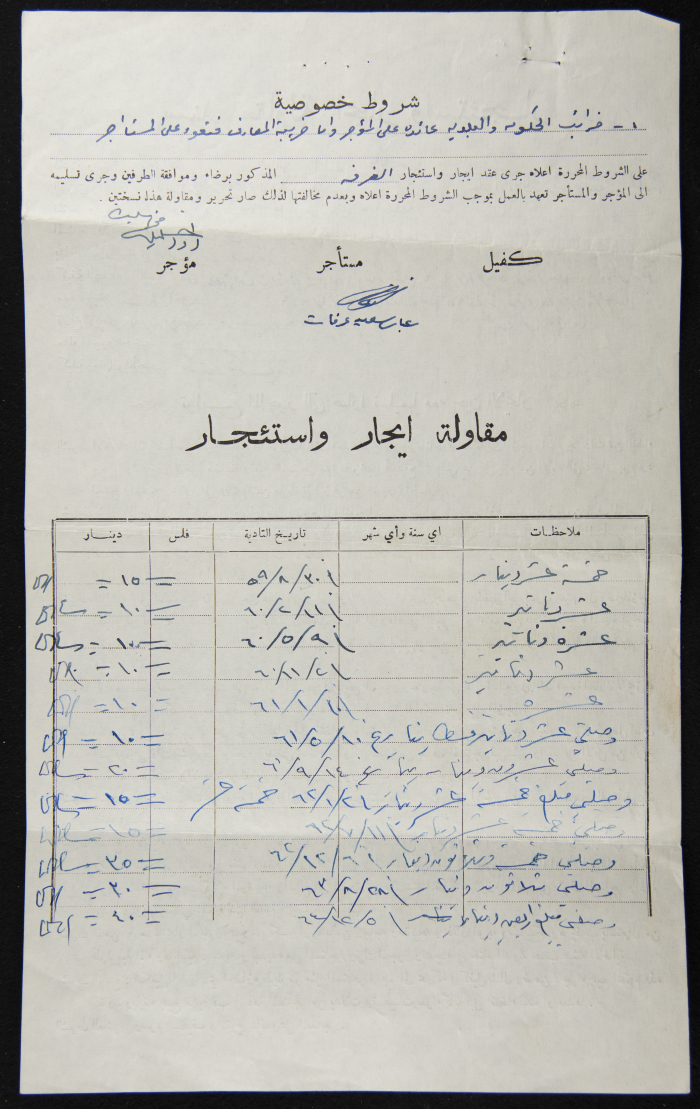 شروط خصوصية
١- ضرائب الحكومه والبلديه عائده على المؤجر واما ضريبة المعارف فتعود على المستأجر
على الشروط المحررة اعلاه جرى عقد ايجار واستئجار الغرفه المذكور برضاء وموافقة الطرفين وجرى تسليمه
الى المؤجر والمستأجر تعهد بالعمل بموجب الشروط المحررة اعلاه وبعدم مخالفتها لذلك صار تحرير ومقاولة هذه نسختين .
كفيل مستأجر مؤجر
عرفات
مقاولة ايجار واستئجار
ملاحظات اي سنة وأي شهر تاريخ التادية فلس دينار
خمسة عشر دينار ٥٩/٨/٣٠ = ١٥ =
عشر دنانير ٦٠/٢/١١ = ١٠ =
عشره دنانير ٦٠/٥/٩ = ١٠ =
عشر دنانير ٦٠/١١/٢ = ١٠ =
عشره ٦١/١/١٠ = ١٠ =
وصلني عشر دنانير فقط بتاريخ ٦١/٥/١٠ = ١٠ =
وصلني عشرون دينار بتاريخ ٦١/٩/١٤ = ٢٠ =
وصلني مبلغ خمسة عشر دينار ٦٢/١/٢١ = ١٥ =
وصلني خمسة عشر دينار ٦٢/٧/١١ = ١٥ =
وصلني خمسة وثلاثون دينار = ٣٥ =
وصلني ثلاثون دينار ٦٣/٨/٢٨ = ٣٠ =
وصلني مبلغ اربعين دينار ٦٣/١٢/٥ = ٤٠ =